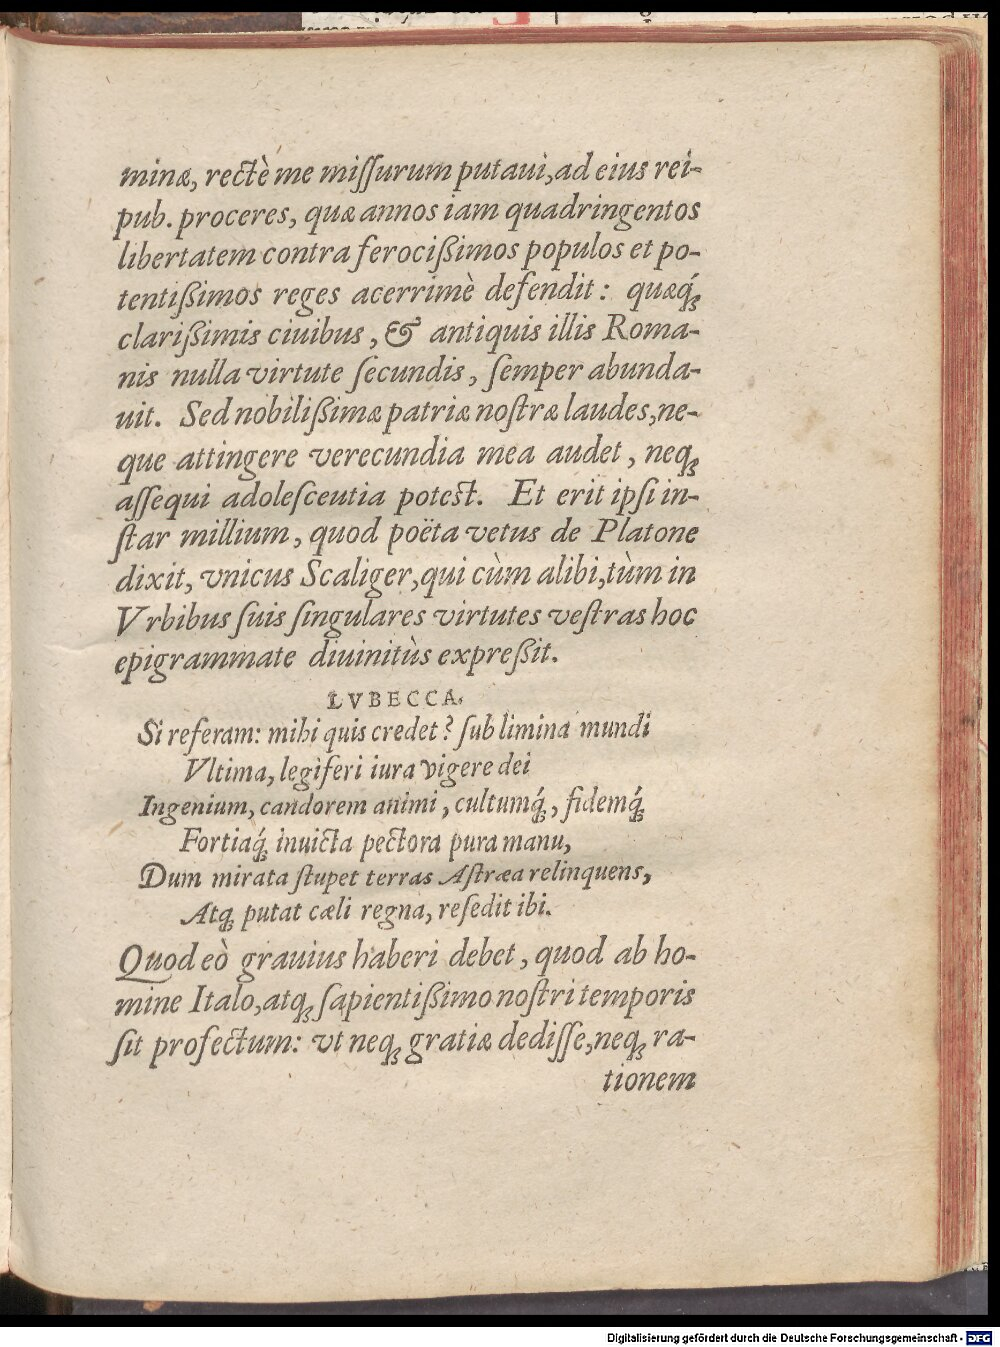 minæ, rectè me miſſurum putaui, ad eius rei-
pub. proceres, quæ annos iam quadringentos
libertatem contra ferocißimos populos et po-
tentißimos reges acerrimè defendit: quæq́;
clarißimis ciuibus, & antiquis illis Roma-
nis nulla virtute ſecundis, ſemper abunda-
uit. Sed nobilißimæ patriæ noſtræ laudes, ne-
que attingere verecundia mea audet, neq;
aſſequi adoleſceutia potest. Et erit ipſi in-
ſtar millium, quod poëta vetus de Platone
dixit, vnicus Scaliger, qui cùm alibi, tùm in
Vrbibus ſuis ſingulares virtutes veſtras hoc
epigrammate diuinitùs expreßit.
LVBECCA.
Si referam: mihi quis credet? ſub limina mundi
Vltima, legiferi iura vigere dei
Ingenium, candorem animi, cultumq́;, fidemq́;
Fortiaq́; inuicta pectora pura manu,
Dum mirata ſtupet terras Aſtræa relinquens,
Atq; putat cæli regna, reſedit ibi.
Quod eò grauius haberi debet, quod ab ho-
mine Italo, atq; ſapientißimo noſtri temporis
ſit profectum: vt neq; gratiæ dediſſe, neq; ra-
tionem
Digitalisierung gefördert durch die Deutsche Forschungsgemeinschaft - DFG